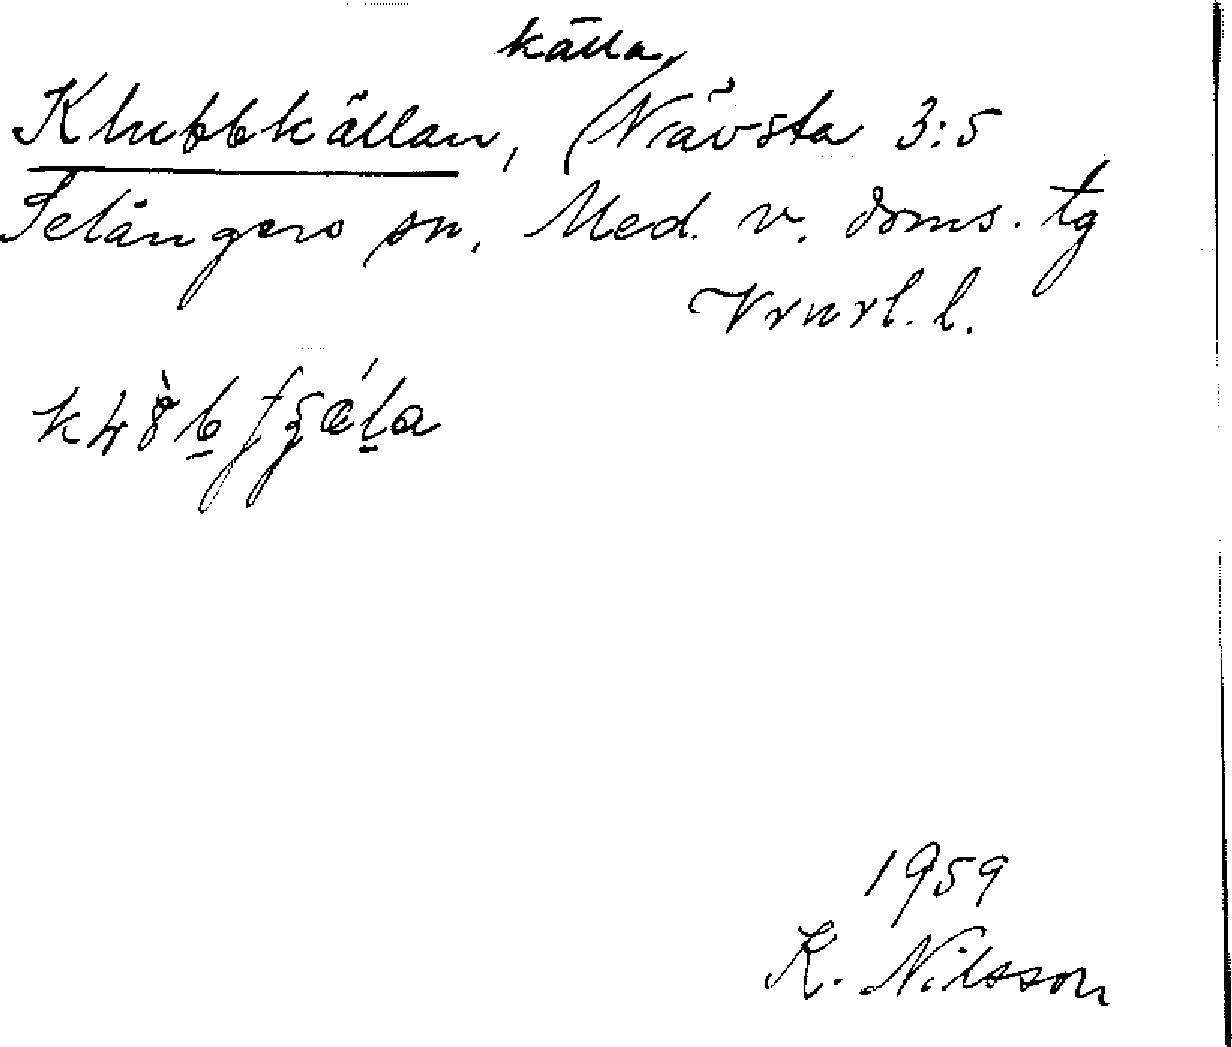 källa
Klubbkällan, Nävsta 3:5
Selångers sn, Med. v. doms. tg
Vrnrl. l.
1959
K. Nilsson